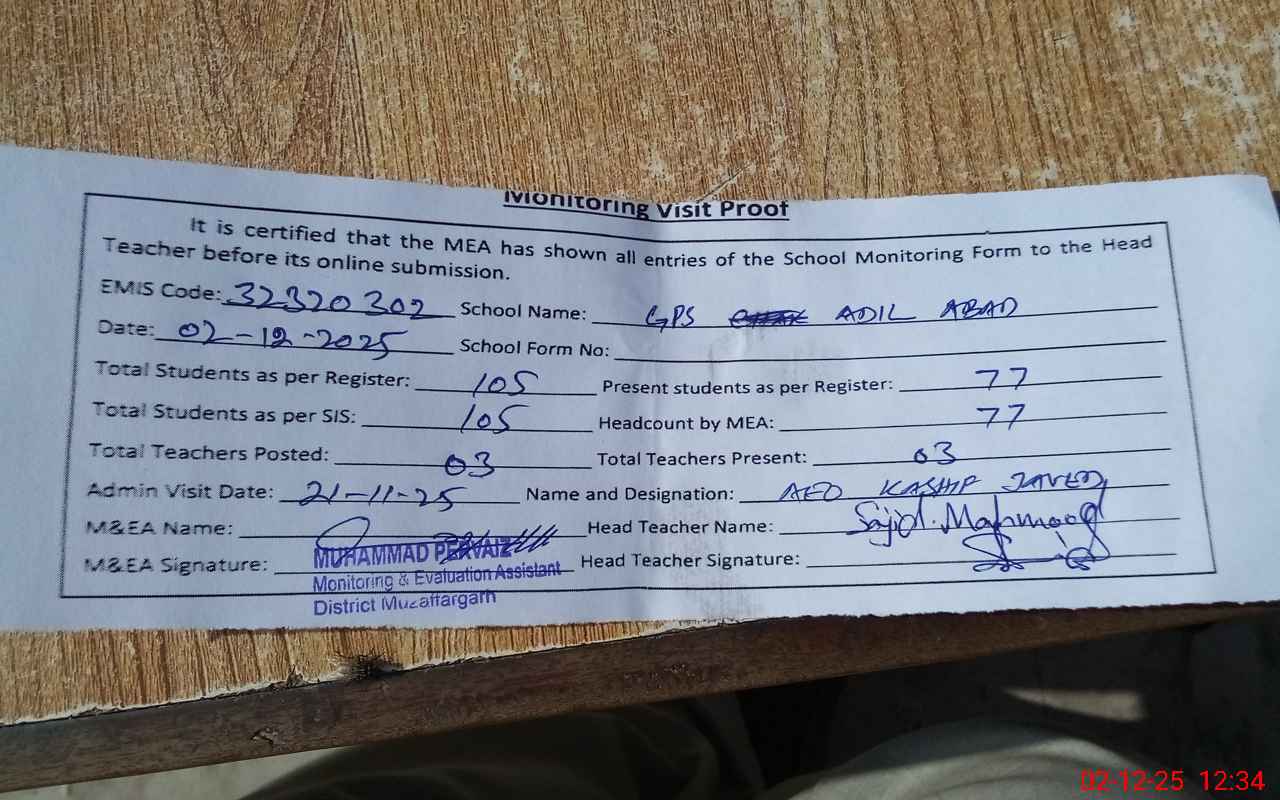 Monitoring Visit Proof
It is certified that the MEA has shown all entries of the School Monitoring Form to the Head
Teacher before its online submission.
EMIS Code: 32320302 School Name: GPS ADIL ABAD
Date: 02-12-2025 School Form No:
Total Students as per Register: 105 Present students as per Register: 77
Total Students as per SIS: 105 Headcount by MEA: 77
Total Teachers Posted: 03 Total Teachers Present: 03
Admin Visit Date: 21-11-25 Name and Designation: AEO KASHIF JAVED
M&EA Name: Head Teacher Name: Sajid Mahmood
MUHAMMAD PERVAIZ
M&EA Signature: Head Teacher Signature:
Monitoring & Evaluation Assistant
District Muzaffargarh
02-12-25 12:34